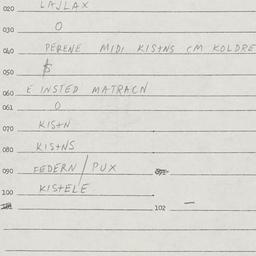 020 LAJLAX
030 O
040 PERENE MIDI KIS+NS CM KOLDRE
050 $
060 E INSTED MATRACN
061 O
070 KIS+N
080 KIS+NS
090 FEDERN / PUX
100 KIS+ELE
102 —